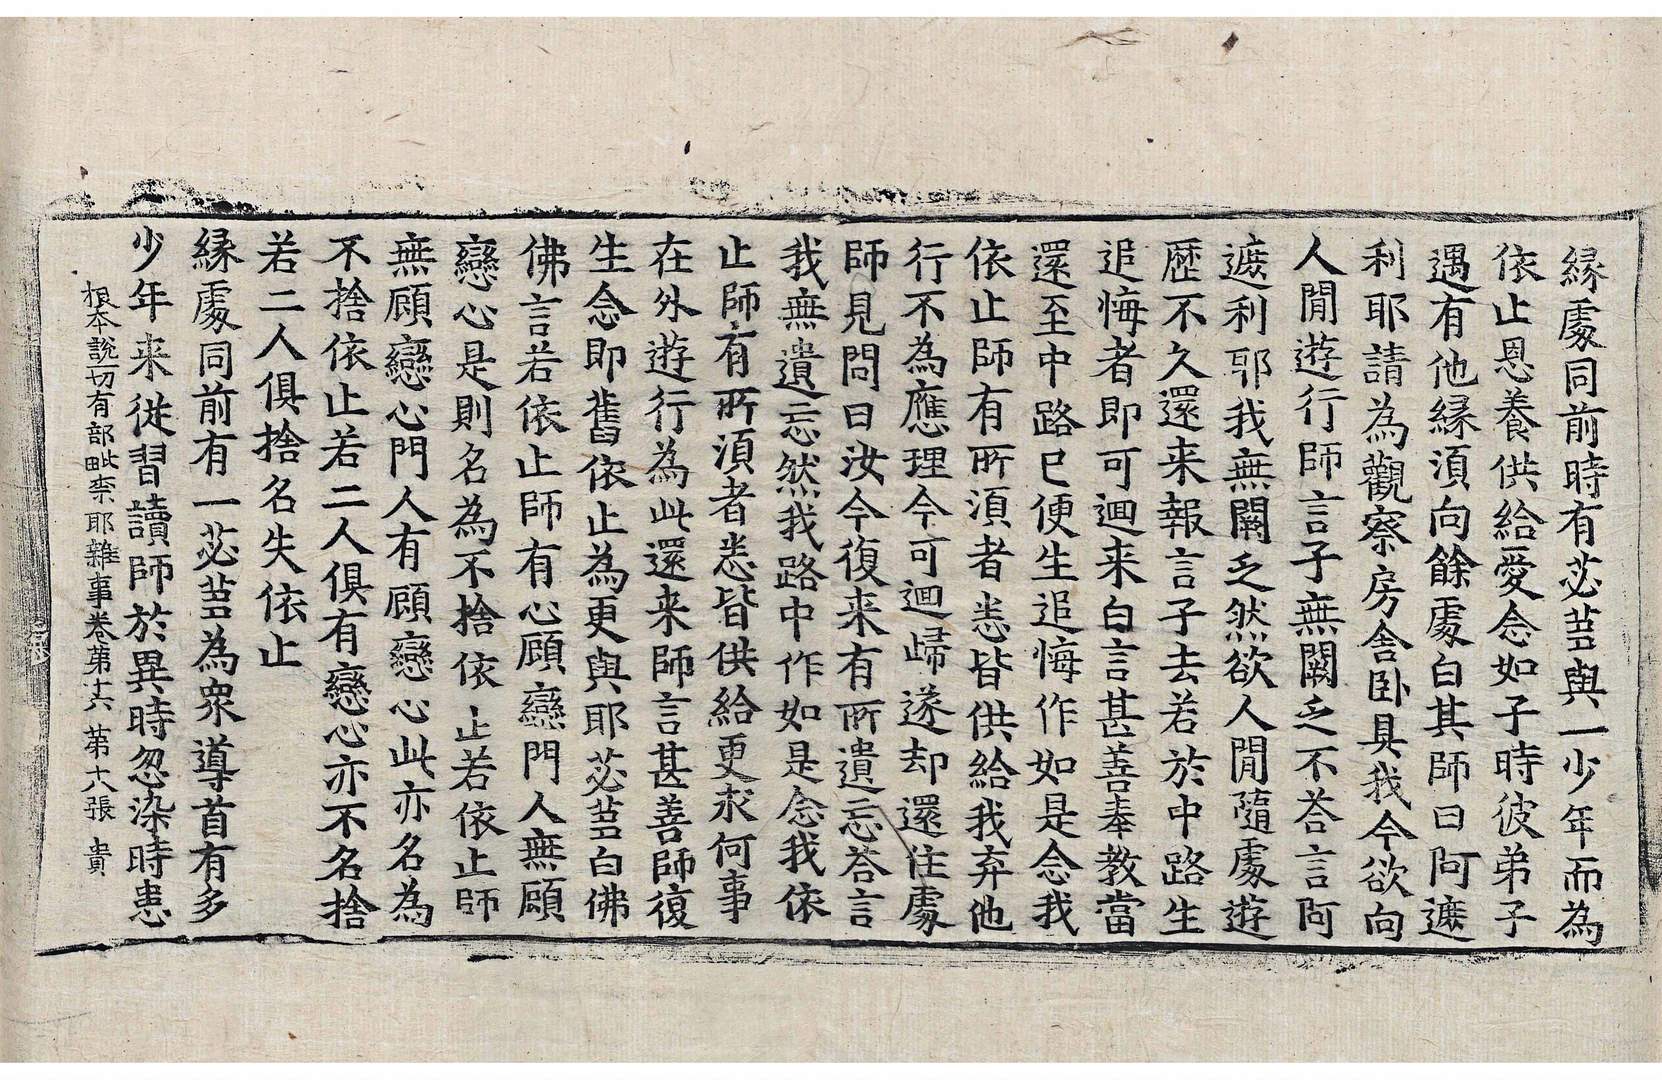 縁處同前時有苾蒭與一少年而為
依止恩養供給愛念如子時彼弟子
遇有他縁湏向餘處白其師曰阿遮
利耶請為觀察房舍卧具我今欲向
人閒遊行師言子無闕乏不荅言阿
遮利耶我無闕乏然欲人閒隨處遊
歷不久還来報言子去若於中路生
追悔者即可迴来白言甚善奉教當
還至中路已便生追悔作如是念我
依止師有所湏者悉皆供給我弃他
行不為應理今可迴歸遂却還住處
師見問曰汝今復来有所遺忘荅言
我無遺忘然我路中作如是念我依
止師有所湏者悉皆供給更求何事
在外遊行為此還来師言甚善師復
生念即舊依止為更與耶苾蒭白佛
佛言若依止師有心顧戀門人無顧
戀心是則名為不捨依止若依止師
無顧戀心門人有顧戀心此亦名為
不捨依止若二人俱有戀心亦不名捨
若二人俱捨名失依止
縁處同前有一苾蒭為衆導首有多
少年来從習讀師於異時忽染時患
根本說一切有部毗柰耶雜事卷第十六 第十八張 貴